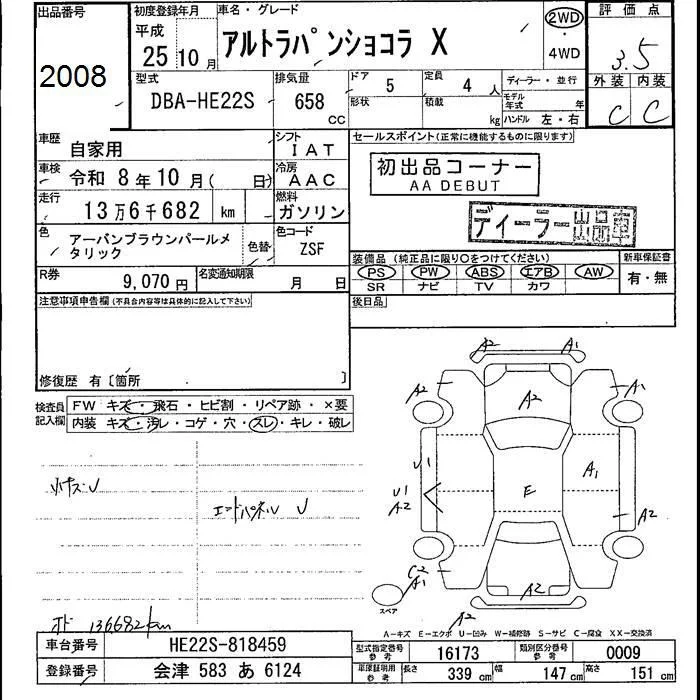 出品番号
2008
初度登録年月
平成
25 10 月
車名・グレード
アルトラパンショコラ X
2WD
・
4WD
評価点
3.5
外装 内装
C C
型式
DBA-HE22S
排気量
658
CC
ドア
5
定員
4 人
形状
積載
kg
ディーラー・並行
モデル
年式 年
ハンドル 左・右
車歴
自家用
シフト
IAT
セールスポイント(正常に機能するものに限ります)
車検
令和 8 年 10 月( 日)
冷房
AAC
初出品コーナー
AA DEBUT
走行
13万6千682 km
燃料
ガソリン
ディーラー出品車
色
アーバンブラウンパールメ
タリック
色替
色コード
ZSF
装備品 (純正品に限り○をつけてください)
新車保証書
PS PW ABS エアB AW
有・無
SR ナビ TV カワ
R券
9,070 円
名変通知期限
月 日
注意事項申告欄(不具合内容等は具体的に記入して下さい)
後日品
修復歴 有〔箇所 〕
検査員
記入欄
FW キズ・飛石・ヒビ割・リペア跡・×要
内装 キズ・汚レ・コゲ・穴・スレ・キレ・破レ
A2 A1
A2 A2 A1
U1 A1
U1
A2
E
A2
C2
A1
A2
A2
スペア
エンドパネル U
オド 136682km
A-キズ E-エクボ U-凹み W-補修跡 S-サビ C-腐食 XX-交換済
車台番号
HE22S-818459
登録番号
会津 583 あ 6124
型式指定番号
参考
16173
類別区分番号
参考
0009
車庫証明用
参考
長さ
339 cm
幅
147 cm
高さ
151 cm